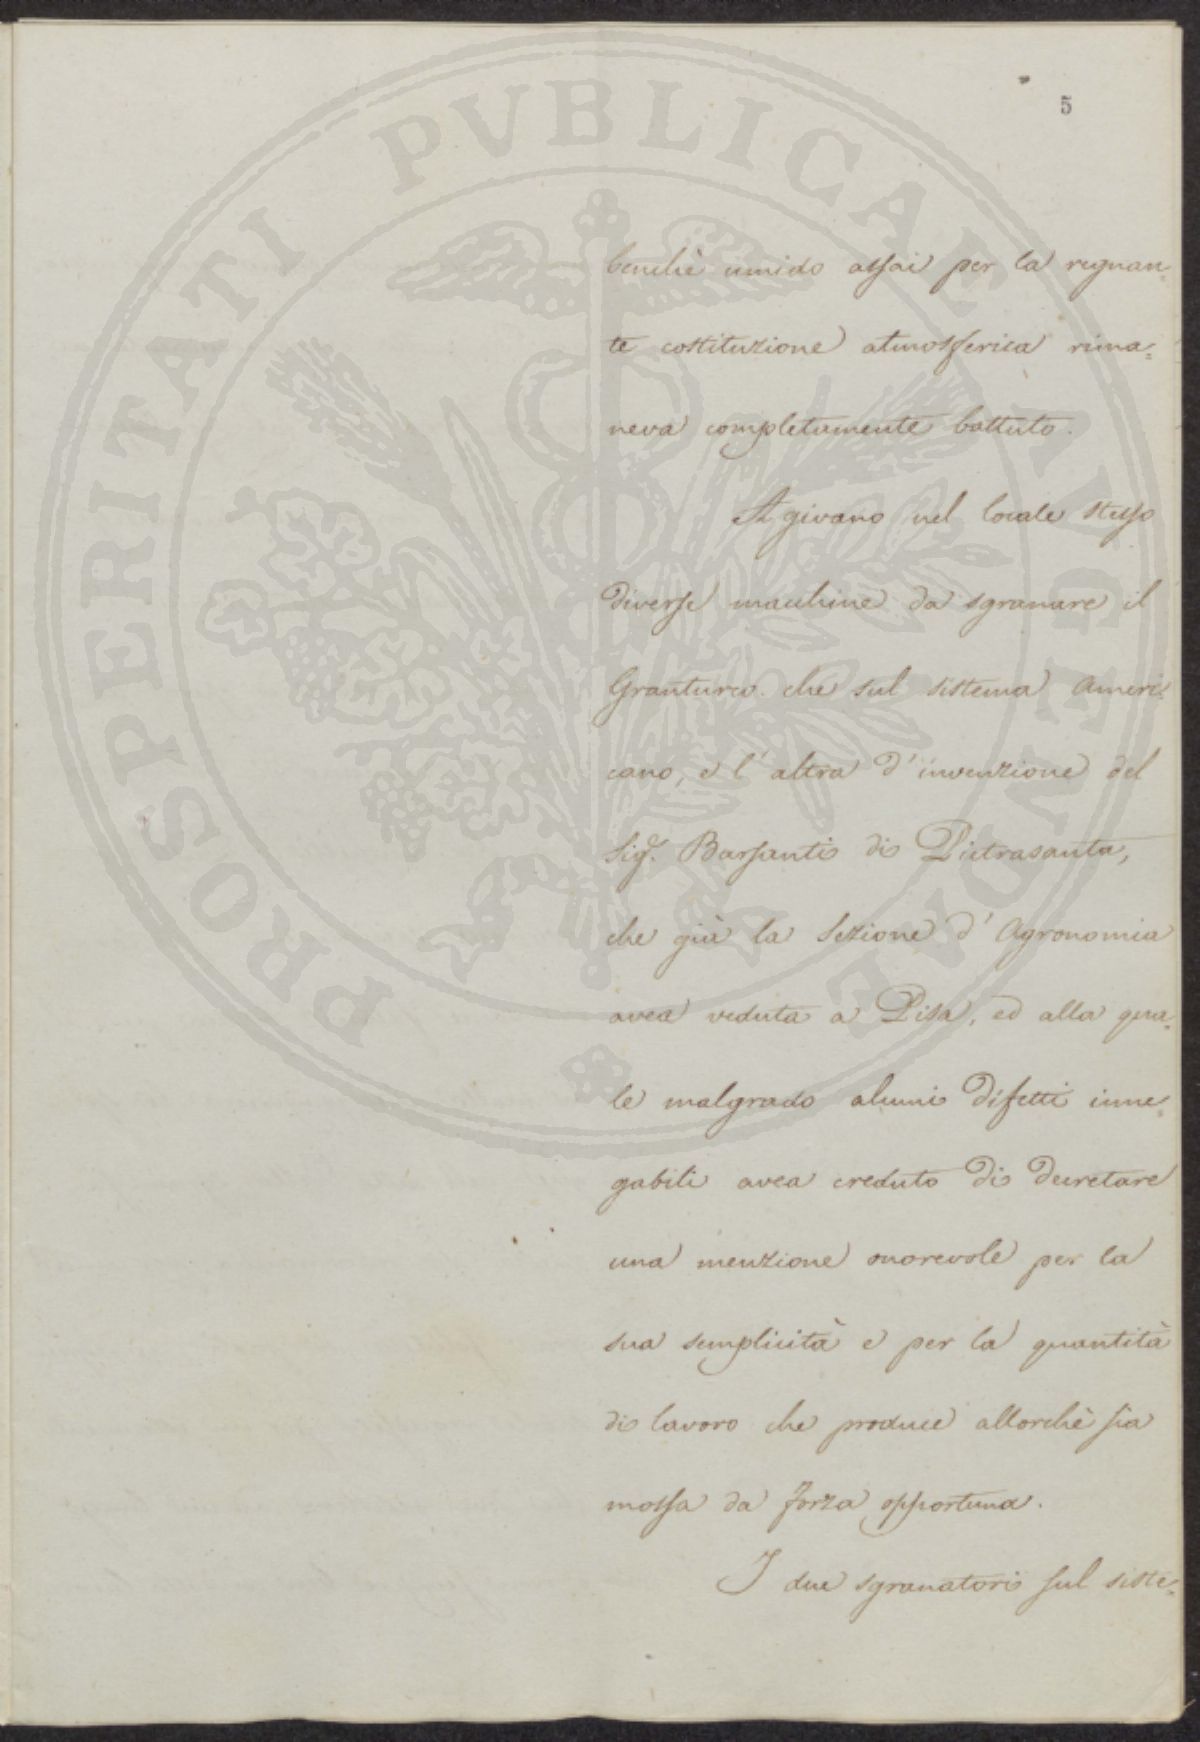 5
benchè umido assai per la regnan=
te costituzione atmosferica rima=
neva completamente battuto.
Agivano nel locale stesso
diverse macchine da sgranare il
Granturco. che sul sistema Ameri=
cano, e l'altra d'invenzione del
Sig.r Barsanti di Pietrasanta,
che già la Sezione d'Agronomia
avea veduta a Pisa, ed alla qua=
le malgrado alcuni difetti inne=
gabili avea creduto di decretare
una menzione onorevole per la
sua semplicità e per la quantità
di lavoro che produce allorchè sia
mossa da forza opportuna.
I due sgranatori sul siste=
PROSPERITATI PVBLICAE AVGENDAE